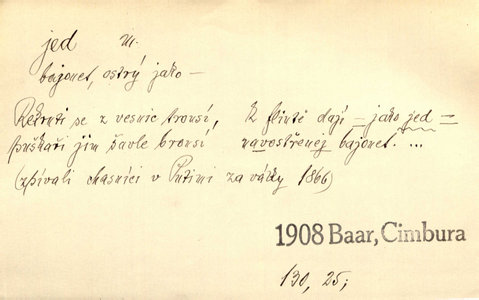 jed m.
bajonet, ostrý jako —
Rekruti se z vesnic trousí, K flintě dají — jako jed —
puškaři jim šavle brousí navostřenej bajonet. ...
(zpívali chasníci v Putimi za války 1866)
1908 Baar, Cimbura
130, 25;